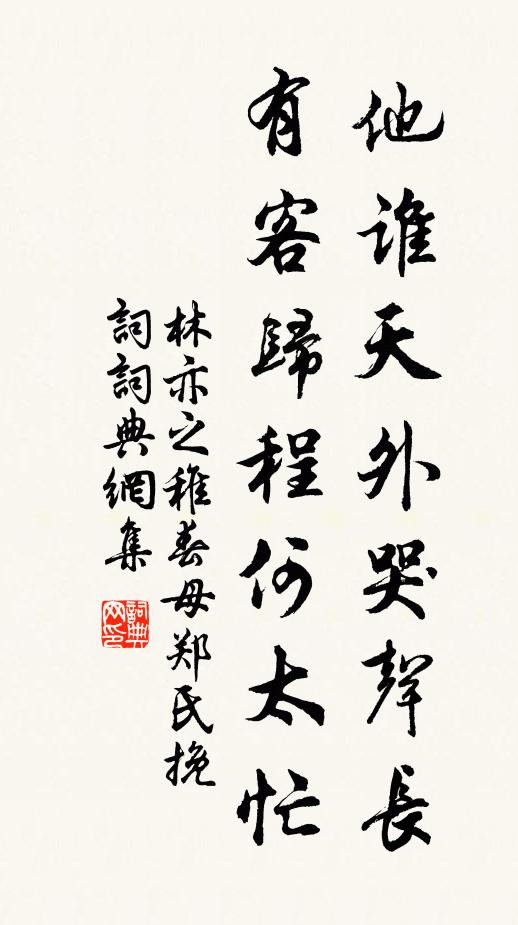 他誰天外哭聲長
有客歸程何太忙
林亦之稚春母郑氏挽
詞詞典網集
詞典网印